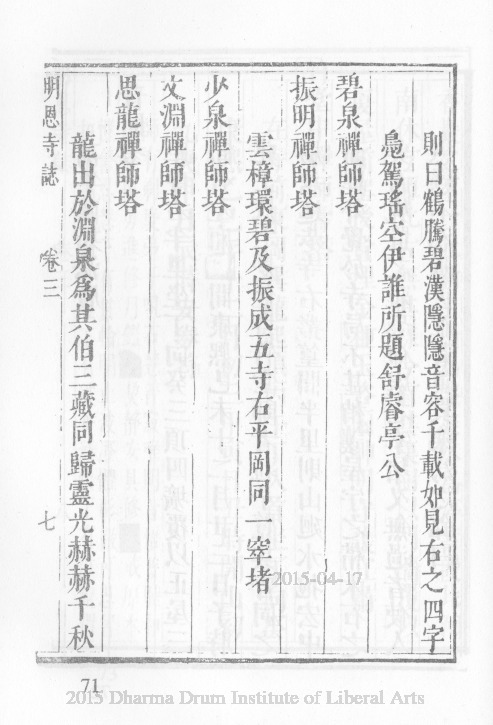 則曰鶴騰碧漢隱隱音容千載如見右之四字
鳧駕瑤空伊誰所題舒睿亭公
碧泉禪師塔
振明禪師塔
雲樟環碧及振成五寺右平岡同一窣堵
少泉禪師塔
文淵禪師塔
思龍禪師塔
龍出於淵泉爲其伯三藏同歸靈光赫赫千秋
明恩寺誌 卷三 七
2015-04-17
71
2015 Dharma Drum Institute of Liberal Arts